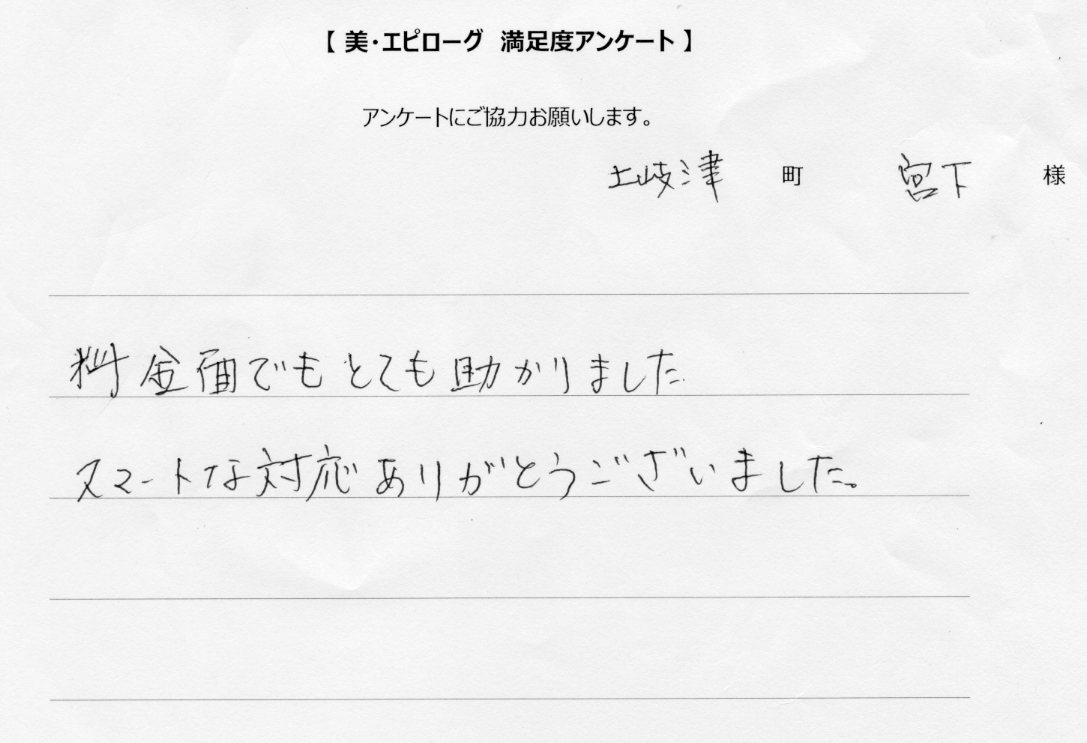 【 美・エピローグ 満足度アンケート 】
アンケートにご協力お願いします。
土岐津 町 宮下 様
料金面でもとても助かりました
スマートな対応ありがとうございました。